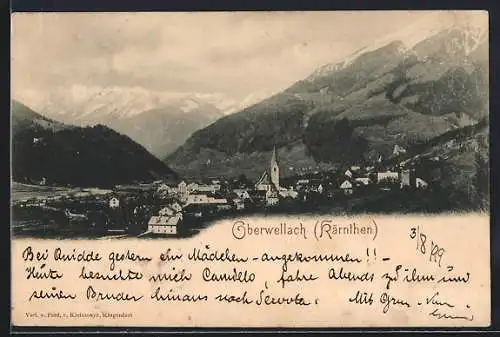 Oberwellach (Kärnthen)
3/8 99
Bei Quidde gestern ein Mädchen - angekommen!! -
Heute besuchte mich Camillo, fahre Abends zu ihm und
seinem Bruder hinaus nach Mit
Verl. v. Ferd. v. Kleinmayr, Klagenfurt